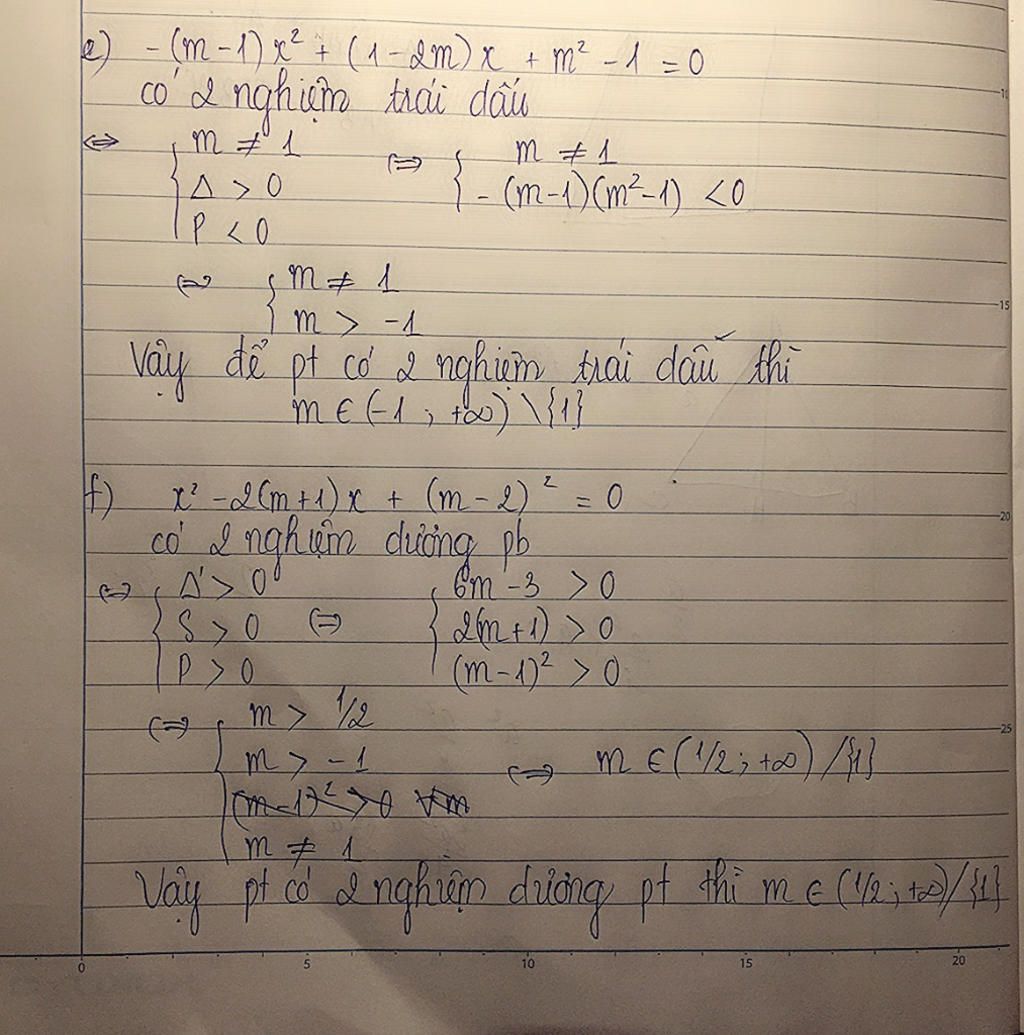 e) -(m-1)x² + (1-2m)x + m² - 1 = 0
có 2 nghiệm trái dấu
⇔ { m ≠ 1 ⇔ { m ≠ 1
Δ > 0 - (m-1)(m²-1) < 0
P < 0
⇔ { m ≠ 1
m > -1
Vậy để pt có 2 nghiệm trái dấu thì
m ∈ (-1 ; +∞) \ {1}
f) x² - 2(m+1)x + (m-2)² = 0
có 2 nghiệm dương pb
⇔ { Δ' > 0 { 6m - 3 > 0
S > 0 ⇔ 2(m+1) > 0
P > 0 (m-1)² > 0
⇔ { m > 1/2
m > -1 ⇔ m ∈ (1/2 ; +∞) / {1}
(m-1)² > 0 ∀m
m ≠ 1
Vậy pt có 2 nghiệm dương pt thì m ∈ (1/2 ; +∞) / {1}
10
15
20
25
0 5 10 15 20